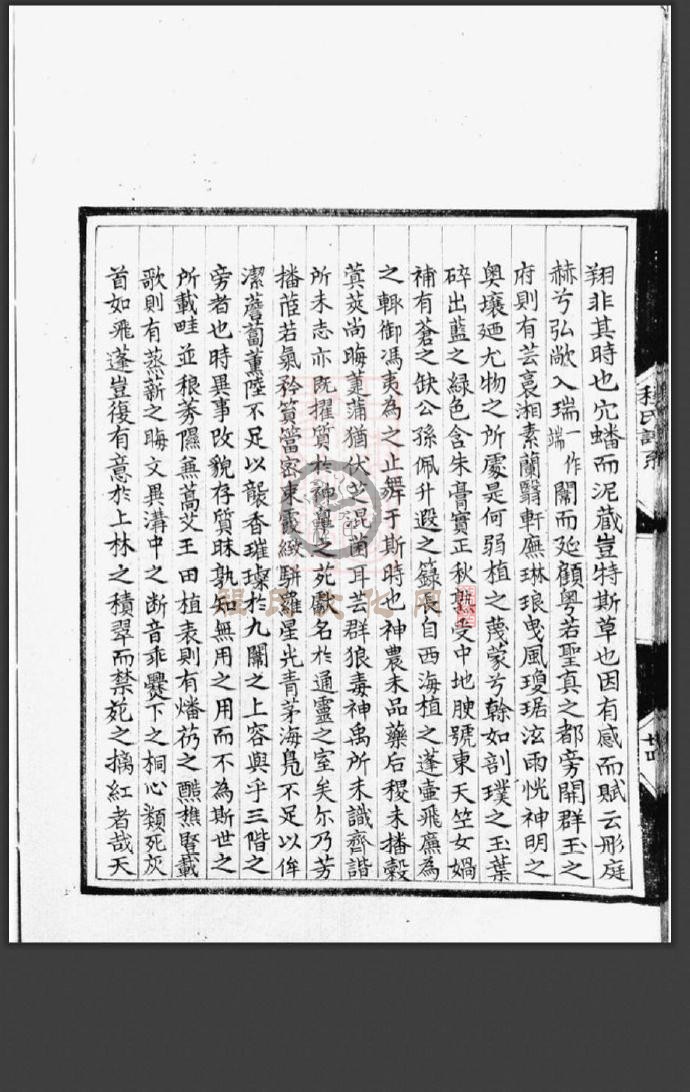 翔非其時也穴蟠而泥蔵豈特斯草也因有感而賦云形庭
赫兮弘敞入瑞一作端闈而延顧粤若聖真之都旁開群玉之
府則有芸裛湘素蘭翳軒廡琳琅曵風瓊琚泫雨恍神明之
奥壤廼尤物之所處是何弱植之蔑蒙兮榦如剖璞之玉葉
碎出藍之緑色含朱膏實正秋   受中地腴號東天竺女媧
補有蒼之缺公孫佩升遐之籙  自西海植之蓬壺飛廉為
之輙御馮夷為之止舞于斯時也神農未品藥后稷未播榖
蓂莢尚晦萐蒲猶伏芝混菌耳芸群狼毒神禹所未識齊諧
所未志亦既擢質於神臯之苑  名於通靈之室矣尔乃芳
播茝若氣矜篔簹密東葭緻駢離星光青茅海鳬不足以侔
潔蘼蕪薫陸不足以襲香璀璨於九闈之上容與乎三階之
旁者也時異事改貌存質昧孰知無用之用而不為斯世之
所載畦並稂莠隰蕪蒿艾王田植表則有燔礿之  樵豎載
歌則有蒸薪之晦文異溝中之断音乖爨下之桐心類死灰
首如飛蓬豈復有意於上林之積翠而禁苑之摛紅者哉天
程氏譜系
廿四
程氏文化网